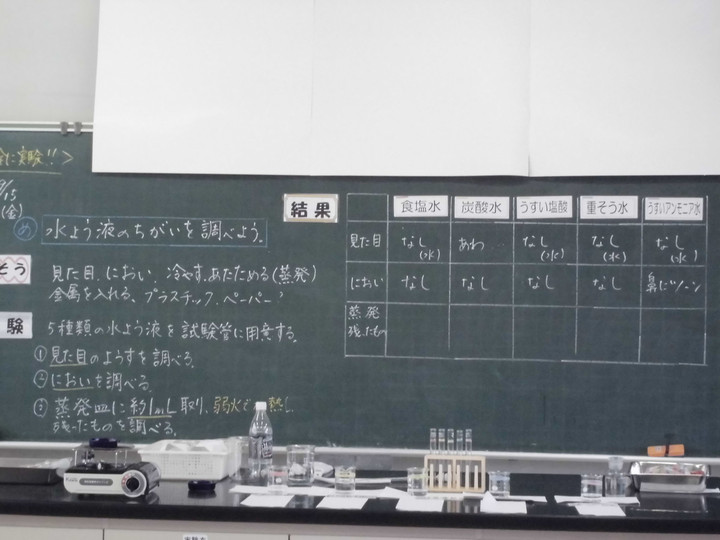 に実験!!>
9/15
(金)
め 水よう液のちがいを調べよう。
そう
見た目、におい、冷やす、あたためる(蒸発)
金属を入れる、プラスチック、ペーパー
験
5種類の水よう液を試験管に用意する。
①見た目のようすを調べる。
②においを調べる。
③蒸発皿に約1mL取り、弱火で熱し
残ったものを調べる。
結果
食塩水 炭酸水 うすい塩酸 重そう水 うすいアンモニア水
見た目 なし(水) あわ なし(水) なし(水) なし(水)
におい なし なし なし なし 鼻にツーン
蒸発
残ったもの